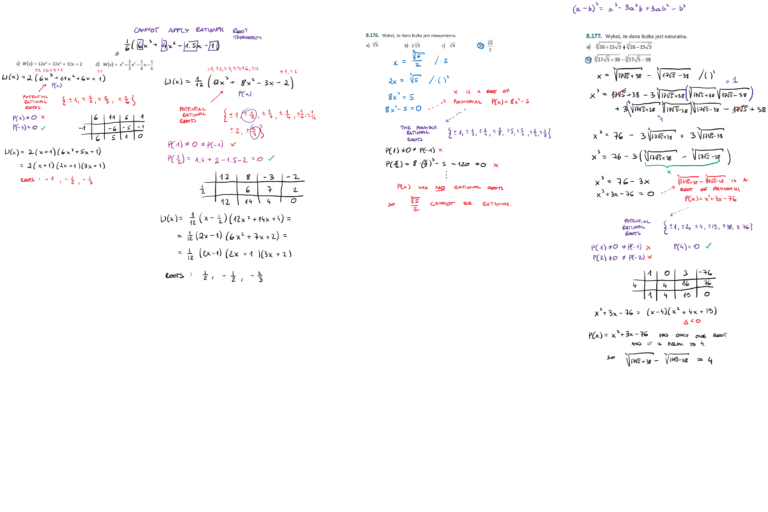 CANNOT APPLY RATIONAL ROOT THEOREM
c) W(x) = 12x³ + 22x² + 12x + 2
W(x) = 2(6x³ + 11x² + 6x + 1)
P(x)
POTENTIAL RATIONAL ROOTS
P(1) ≠ 0 ×
P(-1) = 0 ✓
6 11 6 1
-1 -6 -5 -1
6 5 1 0
W(x) = 2(x+1)(6x²+5x+1)
= 2(x+1)(2x+1)(3x+1)
ROOTS: -1, -1/2, -1/3
W(x) = 1/12 (12x³ + 8x² - 3x - 2)
P(x)
POTENTIAL RATIONAL ROOTS
P(1) ≠ 0 ≠ P(-1) ×
P(1/2) = 1,5 + 2 - 1,5 - 2 = 0 ✓
12 8 -3 -2
1/2 6 7 2
12 14 4 0
W(x) = 1/12 (x - 1/2)(12x² + 14x + 4) =
= 1/12 (2x-1)(6x² + 7x + 2) =
= 1/12 (2x-1)(2x+1)(3x+2)
ROOTS: 1/2, -1/2, -2/3
8.176. Wykaż, że dana liczba jest niewymierna.
x = ∛5/2 / ·2
2x = ∛5 / ( )³
8x³ = 5
8x³ - 5 = 0
x IS A ROOT OF POLYNOMIAL P(x) = 8x³ - 5
THE POSSIBLE RATIONAL ROOTS
P(1) ≠ 0 ≠ P(-1) ×
P(x) HAS NOT RATIONAL ROOTS
SO ∛5/2 CANNOT BE RATIONAL.
(a - b)³ = a³ - 3a²b + 3ab² - b³
8.177. Wykaż, że dana liczba jest naturalna.
a) ∛(26+15√3) + ∛(26-15√3)
b) ∛(17√5+38) - ∛(17√5-38)
x = ∛(17√5+38) - ∛(17√5-38) / ( )³
x³ = 17√5 + 38 - 3∛(17√5+38)(∛(17√5+38) ∛(17√5-38)) = 1
+ 3∛(17√5+38) ∛(17√5-38) ∛(17√5-38) - 17√5 + 38
x³ = 76 - 3∛(17√5+38) + 3∛(17√5-38)
x³ = 76 - 3(∛(17√5+38) - ∛(17√5-38))
x
x³ = 76 - 3x
x³ + 3x - 76 = 0
∛(17√5+38) - ∛(17√5-38) IS A ROOT OF POLYNOMIAL
P(x) = x³ + 3x - 76
POTENTIAL RATIONAL ROOTS {±1, ±2, ±4, ±19, ±38, ±76}
P(1) ≠ 0 ≠ P(-1) × P(4) = 0 ✓
P(2) ≠ 0 ≠ P(-2) ×
1 0 3 -76
4 4 16 76
1 4 19 0
x³ + 3x - 76 = (x-4)(x² + 4x + 19)
Δ < 0
P(x) = x³ + 3x - 76 HAS ONLY ONE ROOT
AND IT IS EQUAL TO 4.
SO ∛(17√5+38) - ∛(17√5-38) = 4